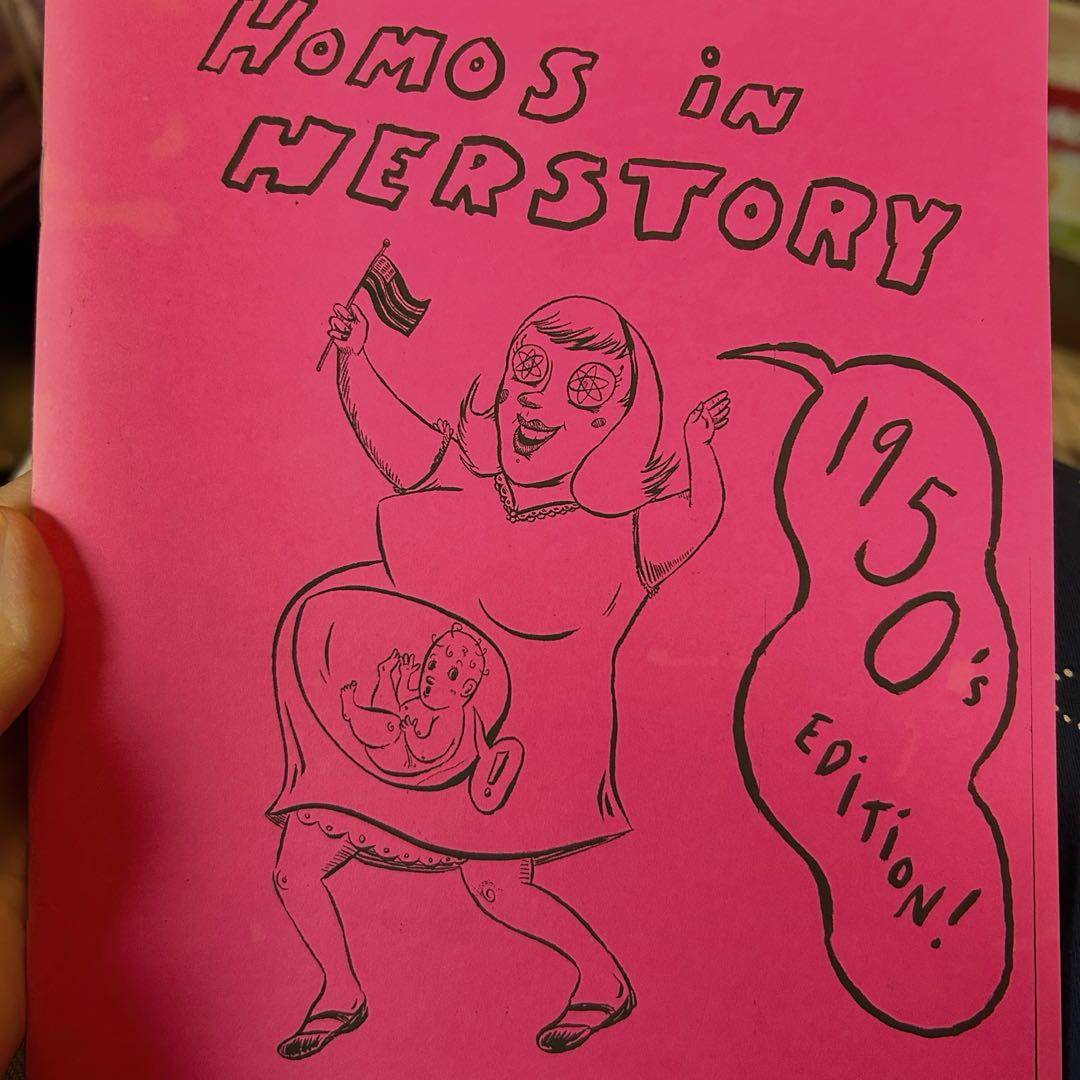 HOMOS iN
HERSTORY
1950's
EDiTiON!
!